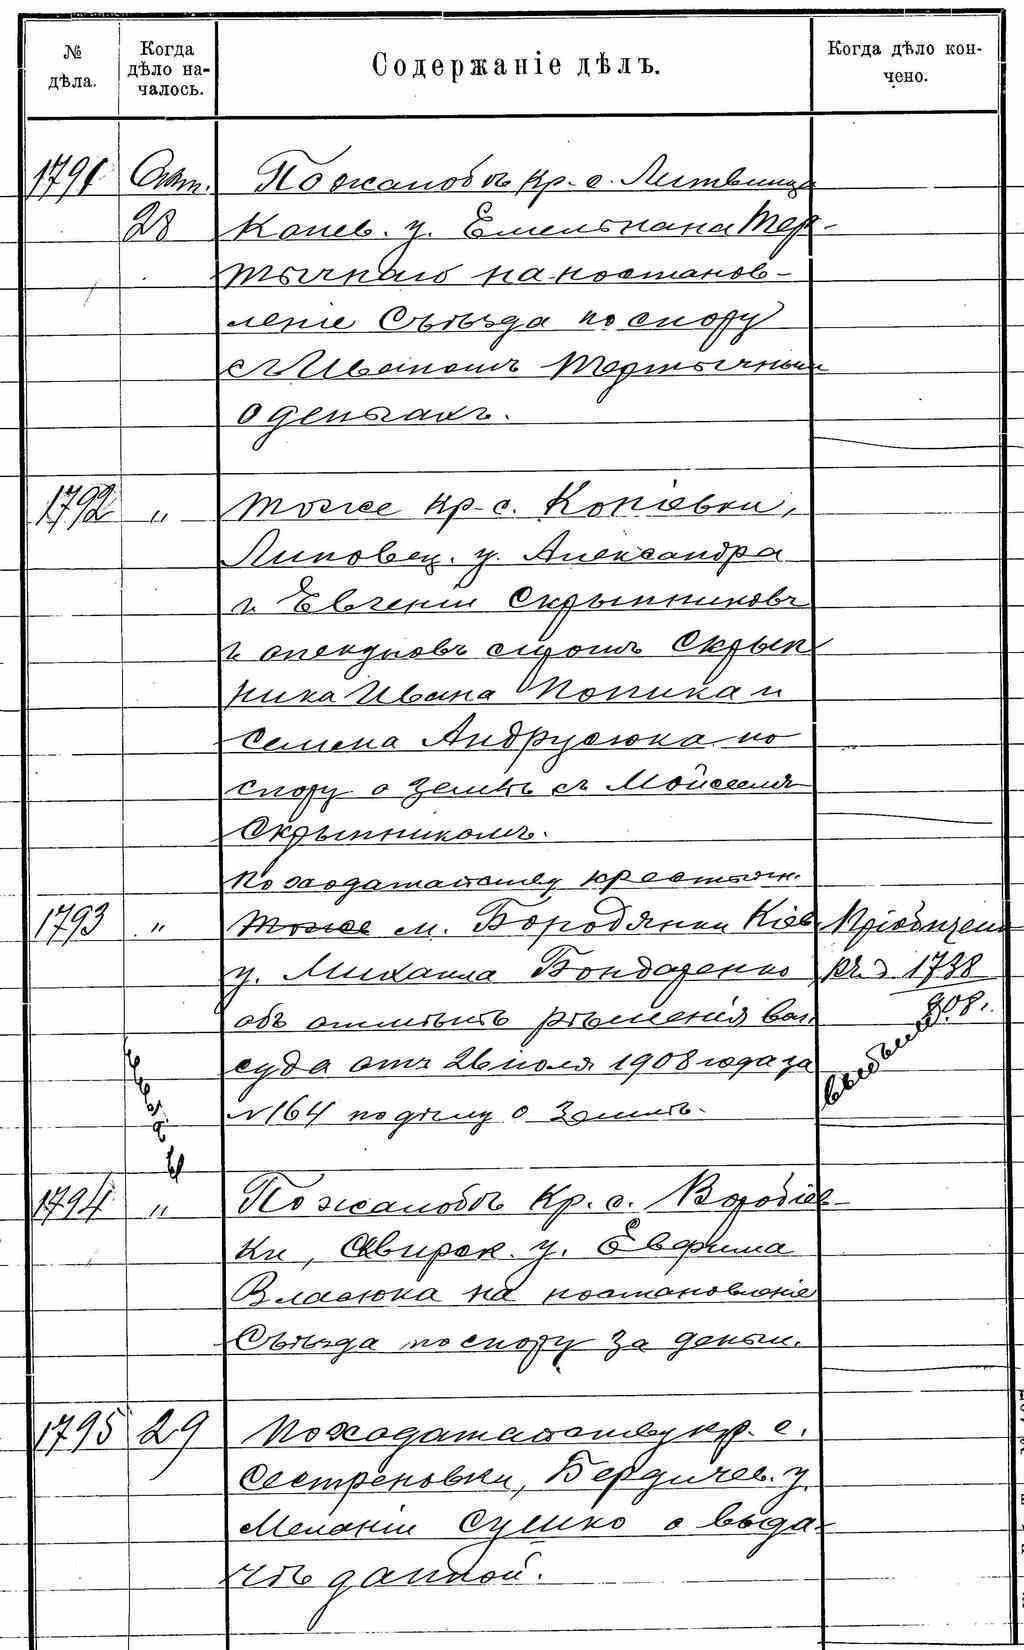 № дѣла.
Когда дѣло началось.
Содержаніе дѣлъ.
Когда дѣло кончено.
1791 Окт. По жалобѣ кр. с. Литвинца
28 Канев. у. Емельяна Тер-
тычнаго на постанов-
леніе Съѣзда по спору
съ Иваномъ Тертычнымъ
о деньгахъ.
1792 „ Тоже кр. с. Копіевки,
Липовец. у. Александра
и Евгеніи Скрыпниковъ
и опекуновъ сиротъ Скрып
ника Ивана Попика и
Семена Андрусюка по
спору о землѣ съ Мойсеемъ
Скрыпникомъ.
По ходатайству крестьян.
1793 „ Тоже м. Бородянки Кіев. Пріобщено
у. Михаила Бондаренко къ д. 1738
объ отмѣнѣ рѣшенія вол. 908.
суда отъ 26 іюля 1908 года за
№ 164 по дѣлу о землѣ.
1794 „ По жалобѣ кр. с. Воробіев-
ки, Сквирск. у. Евфима
Власюка на постановленіе
Съѣзда по спору за деньги.
1795 29 По ходатайству кр. с.
Сестреновки, Бердичев. у.
Меланіи Сушко о выда-
чѣ данной.